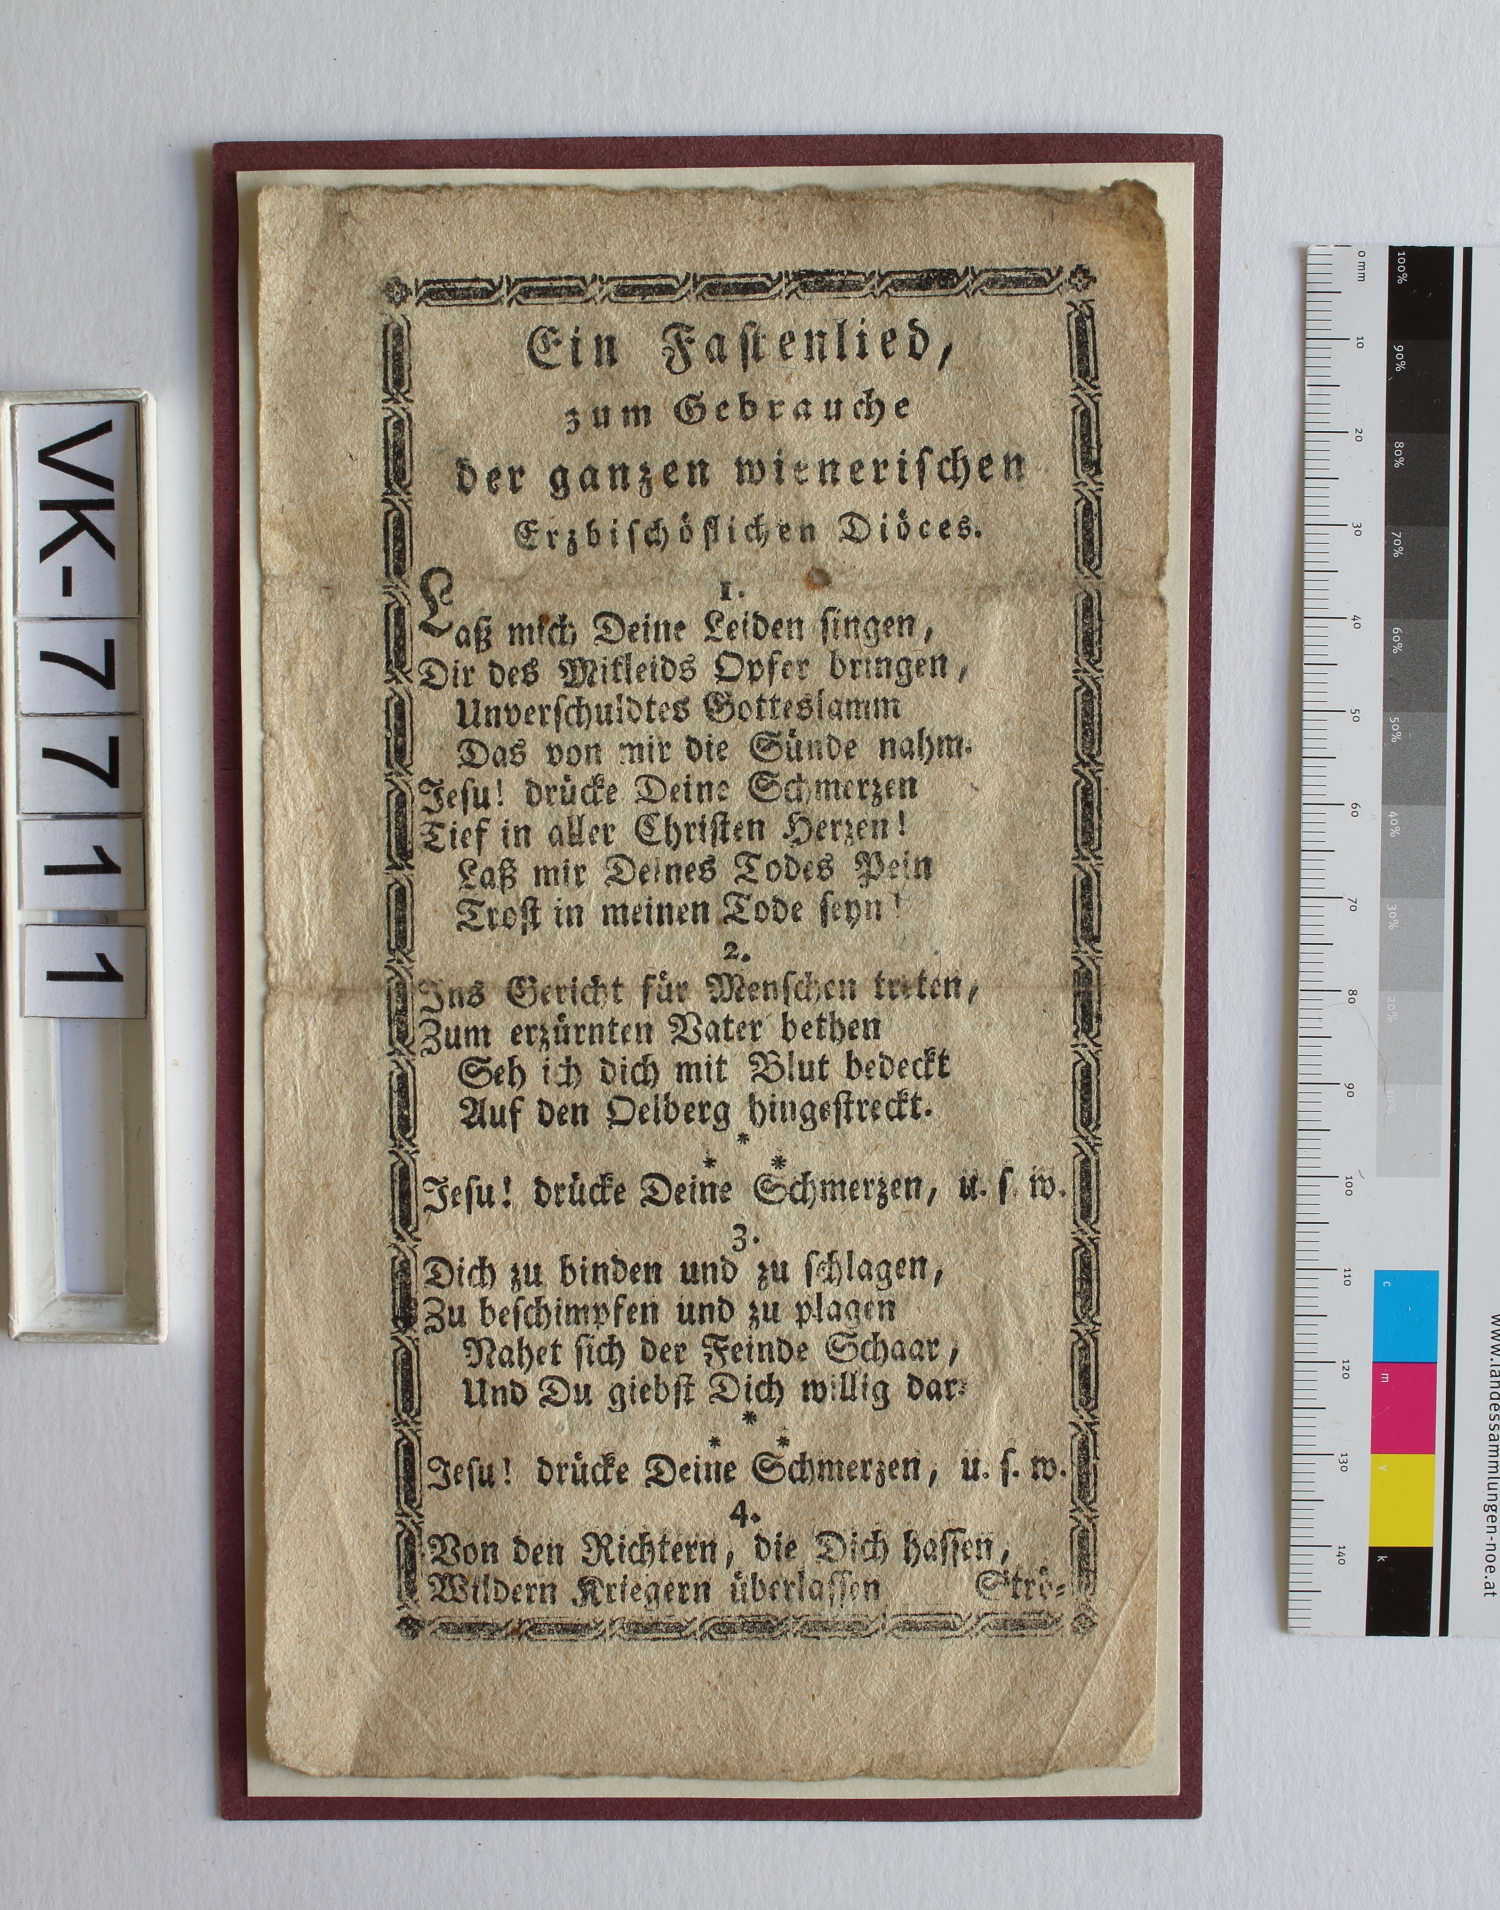 Ein Fastenlied,
zum Gebrauche
der ganzen wienerischen
Erzbischöflichen Diöces.
1.
Laß mich Deine Leiden singen,
Dir des Mitleids Opfer bringen,
Unverschuldtes Gotteslamm
Das von mir die Sünde nahm.
Jesu! drücke Deine Schmerzen
Tief in aller Christen Herzen!
Laß mir Deines Todes Pein
Trost in meinen Tode seyn!
2.
Ins Gericht für Menschen treten,
Zum erzürnten Vater bethen
Seh ich dich mit Blut bedeckt
Auf den Oelberg hingestreckt.
*
* *
Jesu! drücke Deine Schmerzen, u. s. w.
3.
Dich zu binden und zu schlagen,
Zu beschimpfen und zu plagen
Nahet sich der Feinde Schaar,
Und Du giebst Dich willig dar:
*
* *
Jesu! drücke Deine Schmerzen, u. s. w.
4.
Von den Richtern, die Dich hassen,
Wildern Kriegern überlassen Strö=
VK-7711
0 mm 10 20 30 40 50 60 70 80 90 100 110 120 130 140
100% 90% 80% 70% 60% 50% 40% 30% 20% 10%
c m y k
www.landessammlungen-noe.at